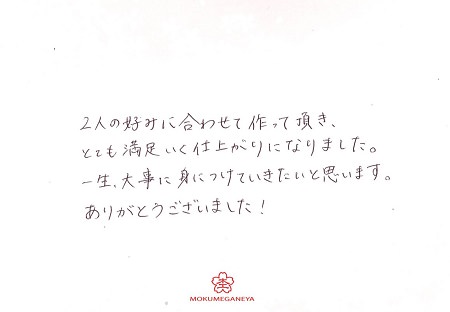 2人の好みに合わせて作って頂き、
とても満足いく仕上がりになりました。
一生、大事に身につけていきたいと思います。
ありがとうございました！
MOKUMEGANEYA